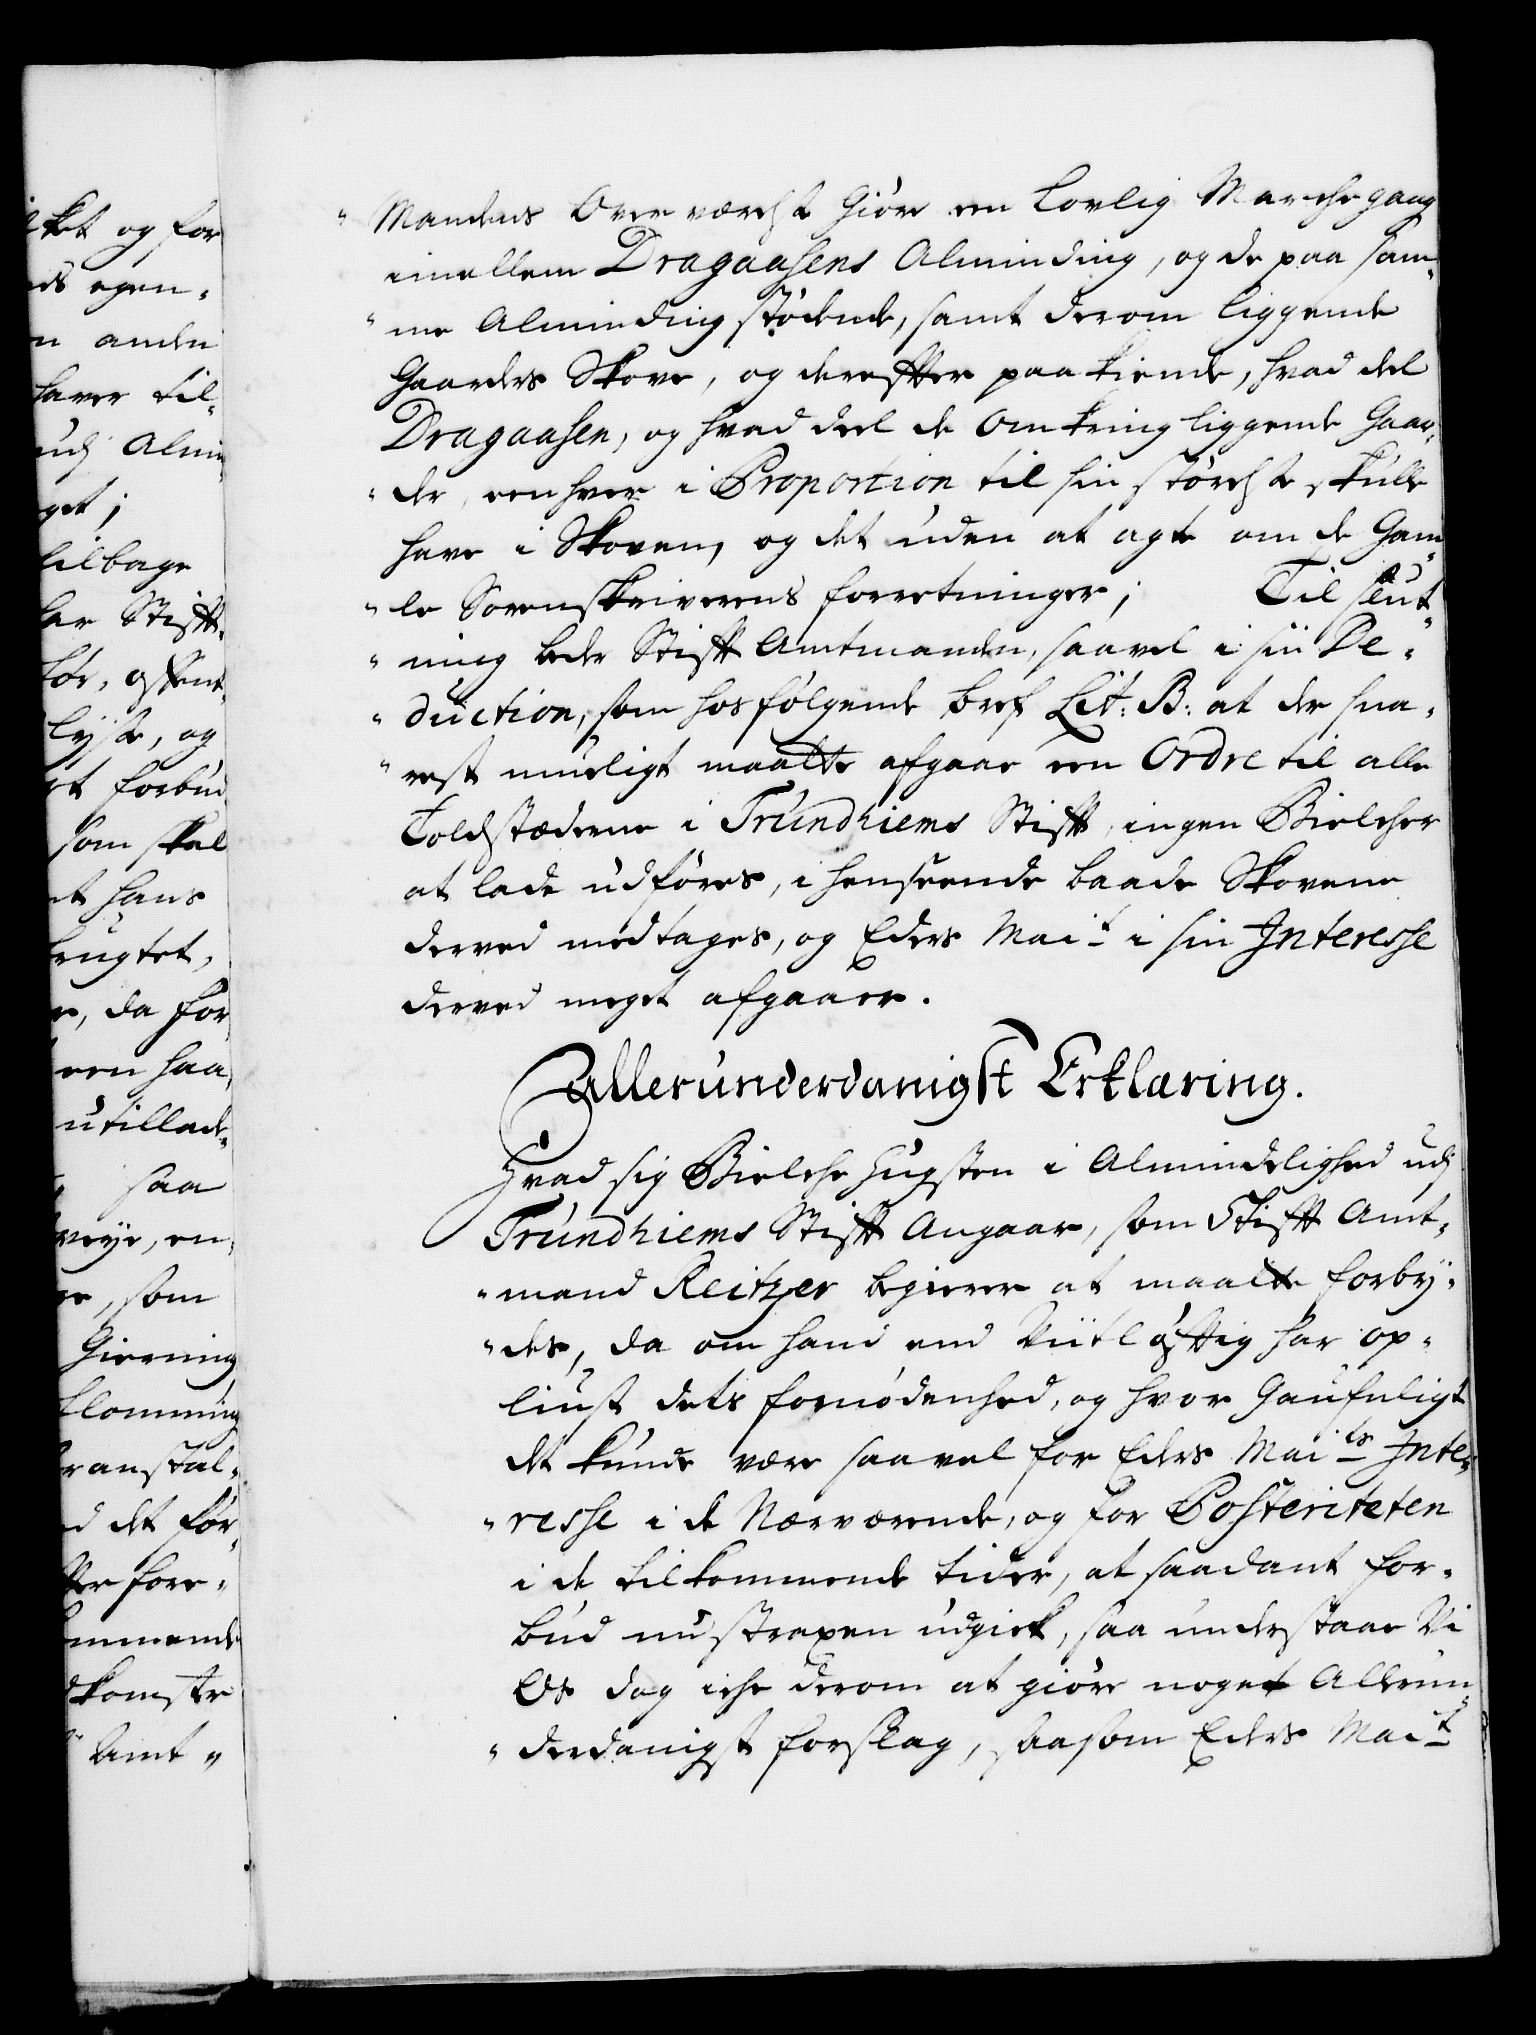 ket og for
ds egen„
n anden
haver til„
udj Almin„
get;
tilbage
ler Stifft„
før, offent„
lyse, og
rt forbud
som skal
et hans
brugtet,
r, da for„
een haa„
utillade„
saa
veye, en„
er, som
Gierning
blomming
r anstal„
d det før„
ter fore„
ommende
dkomste
Amt„
„Mandens Overværelse Giøre een Lovlig Marchegang
imellem Dragaasens Alminding, og de paa sam„
„me Alminding stødende, samt derom liggende
Gaarders Skove, og derefter paa kiende, hvad deel
Dragaasen, og hvad deel de omkring liggende Gaar„
„der, eenhver i Proportion til sin størelse skulle
have i Skoven, og det uden at agte om de Gam„
„le Sorenskriverens forretninger; Til slut„
„ning beder Stifft Amtmanden, saavel i sin De„
„duction, som hosfølgende bref Lit: B: at der sna„
„rest mueligt maatte afgaae een Ordre til alle
Toldstæderne i Trundhiems Stifft, ingen Bielcher
at lade udføres, i henseende baade Skovene
derved medtages, og Eders Mai.t i sin Interesse
derved meget afgaaer.
Allerunderdanigst Erklæring.
Hvad sig Bielche Hugsten i Almindelighed udj
Trundhiems Stifft Angaar, som Stifft Amt„
„mand Reitzer begierer at maatte forby„
„des, da om hand end Viitløfftig har op„
liust dets fornødenhed, og hvor Gaufnligt
det kunde være saavel for Eders Mai.ts Inte„
„resse i de Nærværende, og for Posteriteten
i de tilkommende tider, at saadant for„
bud nu straxen udgick, saa understaae Vi
Os dog iche derom at giøre noget Allerun„
„derdanigst forslag, saasom Eders Mai.t